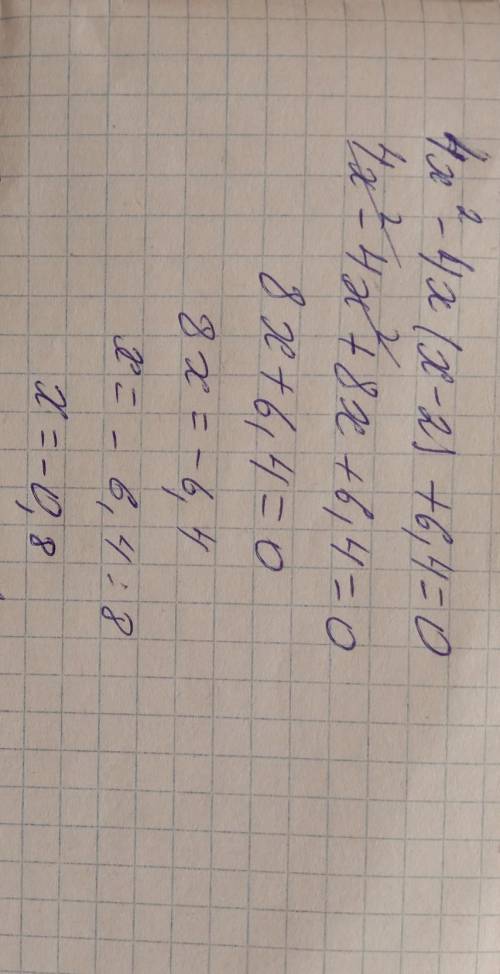 4x² - 4x(x-2) + 6,4 = 0
4x² - 4x² + 8x + 6,4 = 0
8x + 6,4 = 0
8x = -6,4
x = - 6,4 : 8
x = -0,8